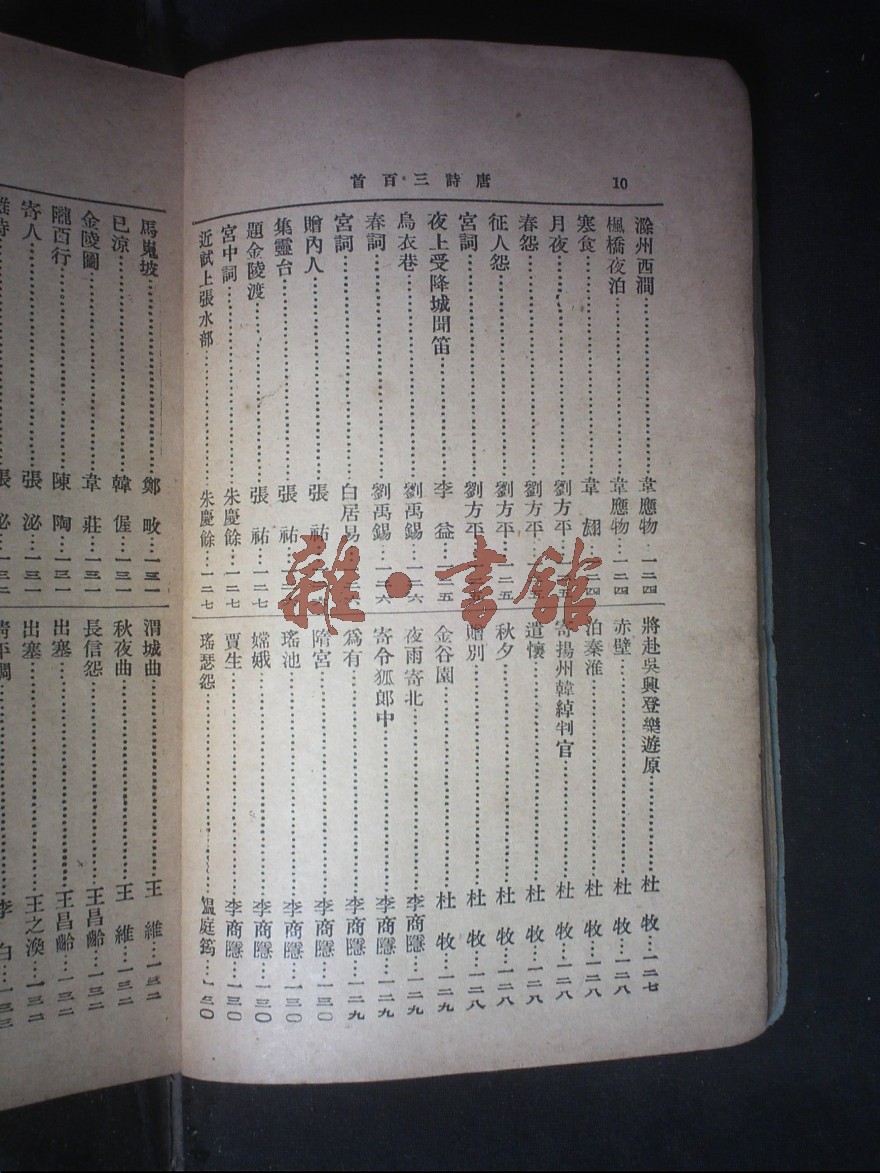 唐詩三百首
10
滁州西澗 韋應物 一二四
楓橋夜泊 韋應物 一二四
寒食 韋翃 二四
月夜 劉方平 二五
春怨 劉方平 五
征人怨 劉方平 一二五
宮詞 劉方平
夜上受降城聞笛 李益 二五
烏衣巷 劉禹錫 一二六
春詞 劉禹錫 一二六
宮詞 白居易
贈內人 張祜
集靈台 張祜 一二七
題金陵渡 張祜 一二七
宮中詞 朱慶餘 一二七
近試上張水部 朱慶餘 一二七
將赴吳興登樂遊原 杜牧 一二七
赤壁 杜牧 一二八
泊秦淮 杜牧 一二八
寄揚州韓綽判官 杜牧 一二八
遣懷 杜牧 一二八
秋夕 杜牧 一二八
贈別 杜牧 一二八
金谷園 杜牧 一二九
夜雨寄北 李商隱 一二九
寄令狐郎中 李商隱 一二九
爲有 李商隱 一二九
隋宮 李商隱 一三〇
瑤池 李商隱 一三〇
嫦娥 李商隱 一三〇
賈生 李商隱 一三〇
瑤瑟怨 溫庭筠 一三〇
馬嵬坡 鄭畋 一三一
已涼 韓偓 一三一
金陵圖 韋莊 一三一
隴西行 陳陶 一三一
寄人 張泌 一三一
渭城曲 王維 一三二
秋夜曲 王維 一三二
長信怨 王昌齡 一三二
出塞 王昌齡 一三二
出塞 王之渙 一三二
李白 一三三
雜·書館